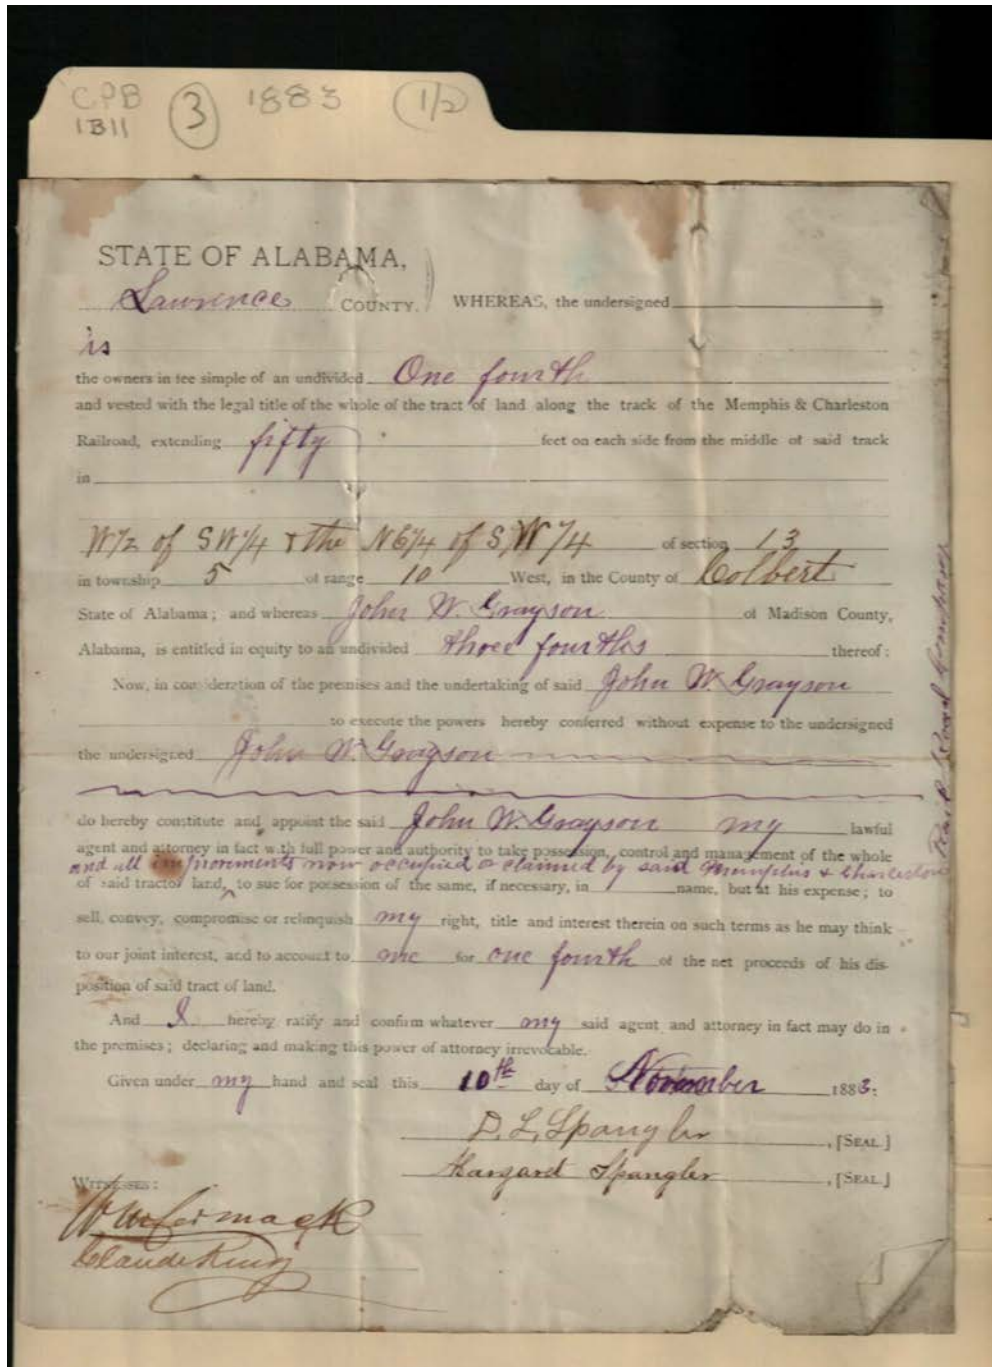 CPB 3 1883 (1/2)
1B11
STATE OF ALABAMA,
Lawrence COUNTY. WHEREAS, the undersigned
is
the owners in fee simple of an undivided One fourth
and vested with the legal title of the whole of the tract of land along the track of the Memphis & Charleston
Railroad, extending fifty feet on each side from the middle of said track
in
W1/2 of SW1/4 & the NE1/4 of SW1/4 of section 13
in township 5 of range 10 West, in the County of Colbert
State of Alabama; and whereas John W. Grayson of Madison County,
Alabama, is entitled in equity to an undivided three fourths thereof:
Now, in consideration of the premises and the undertaking of said John W. Grayson
to execute the powers hereby conferred without expense to the undersigned
the undersigned John W. Grayson
do hereby constitute and appoint the said John W. Grayson my lawful
agent and attorney in fact with full power and authority to take possession, control and management of the whole
and all improvements now occupied or claimed by said Memphis & Charleston
of said tract of land, to sue for possession of the same, if necessary, in name, but at his expense; to
sell, convey, compromise or relinquish my right, title and interest therein on such terms as he may think
to our joint interest, and to account to me for one fourth of the net proceeds of his dis-
position of said tract of land.
And I hereby ratify and confirm whatever my said agent and attorney in fact may do in
the premises; declaring and making this power of attorney irrevocable.
Given under my hand and seal this 10th day of November 1883.
D. L. Spangler, [SEAL.]
Margard Spangler, [SEAL.]
WITNESSES:
W McCormack
Claude King
Rail Road Company